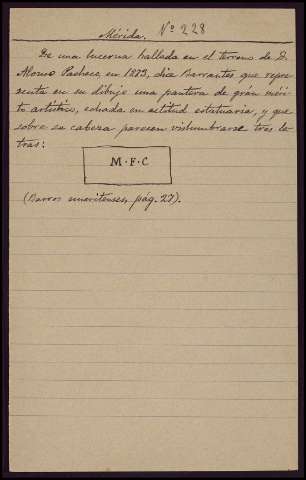 Mérida. Nº 228
De una lucerna hallada en el terreno de D.
Alonso Pacheco, en 1873, dia Barrantes que repre-
senta en su dibujo una pantera de grán méri-
to artístico, echada en actitud estatuaria, y que
sobre su cabeza parecen vislumbrarse tres le-
tras:
M·F·C
(Barros emeritenses, pág. 27).